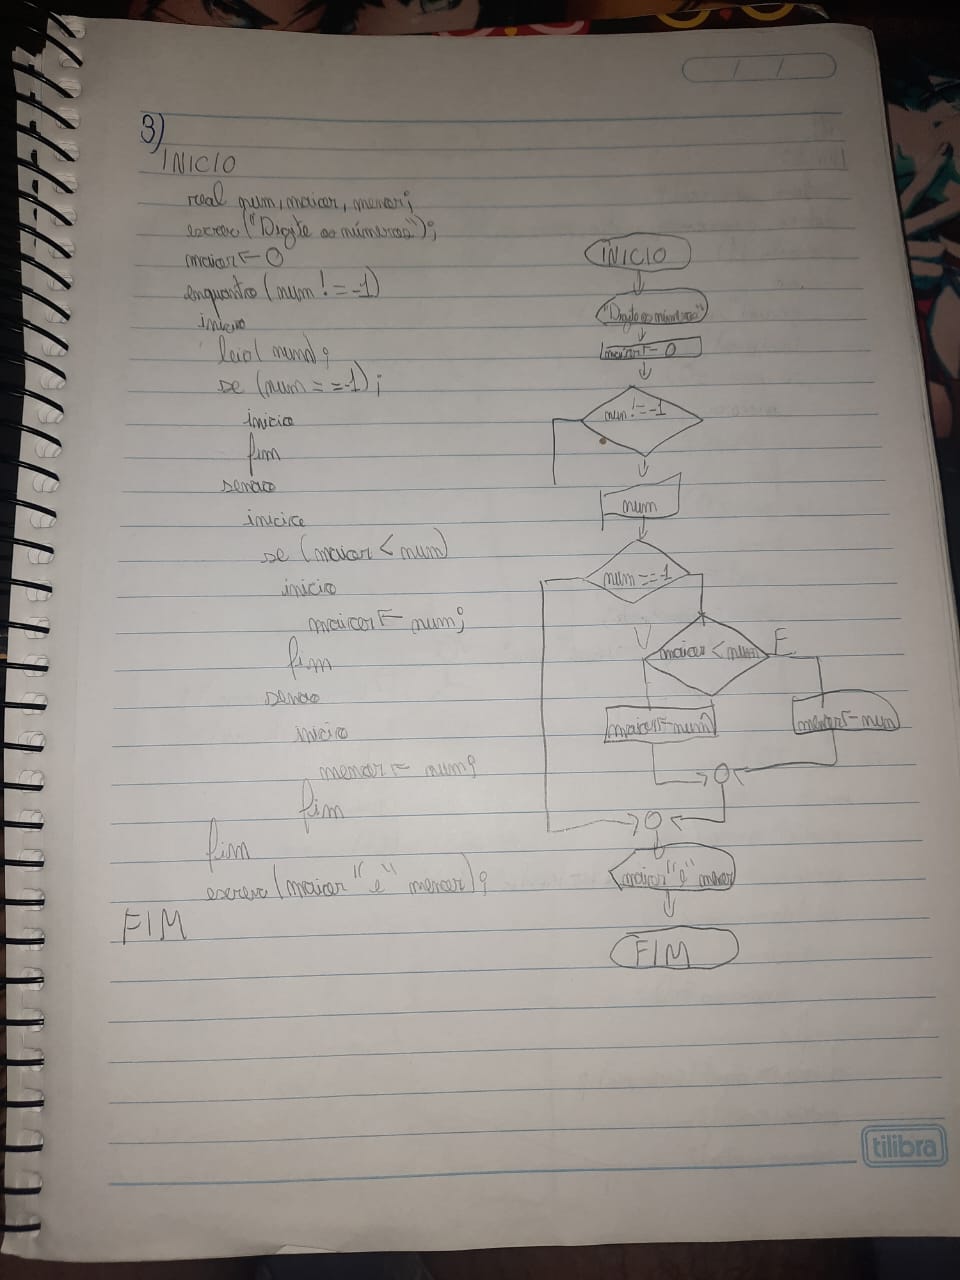 3)
INICIO
real num, maior, menor;
escrev ("Digite os números");
maior ← 0
enquanto (num != -1)
inicio
leia (num);
se (num == -1);
inicio
fim
senao
inicio
se (maior < num)
inicio
maior ← num;
fim
senao
inicio
menor ← num;
fim
fim
escreva (maior "e" menor);
FIM
INICIO
"Digite os números"
maior ← 0
num != -1
num
num == -1
maior < num
V
F
maior ← num
menor ← num
maior "e" menor
FIM
tilibra